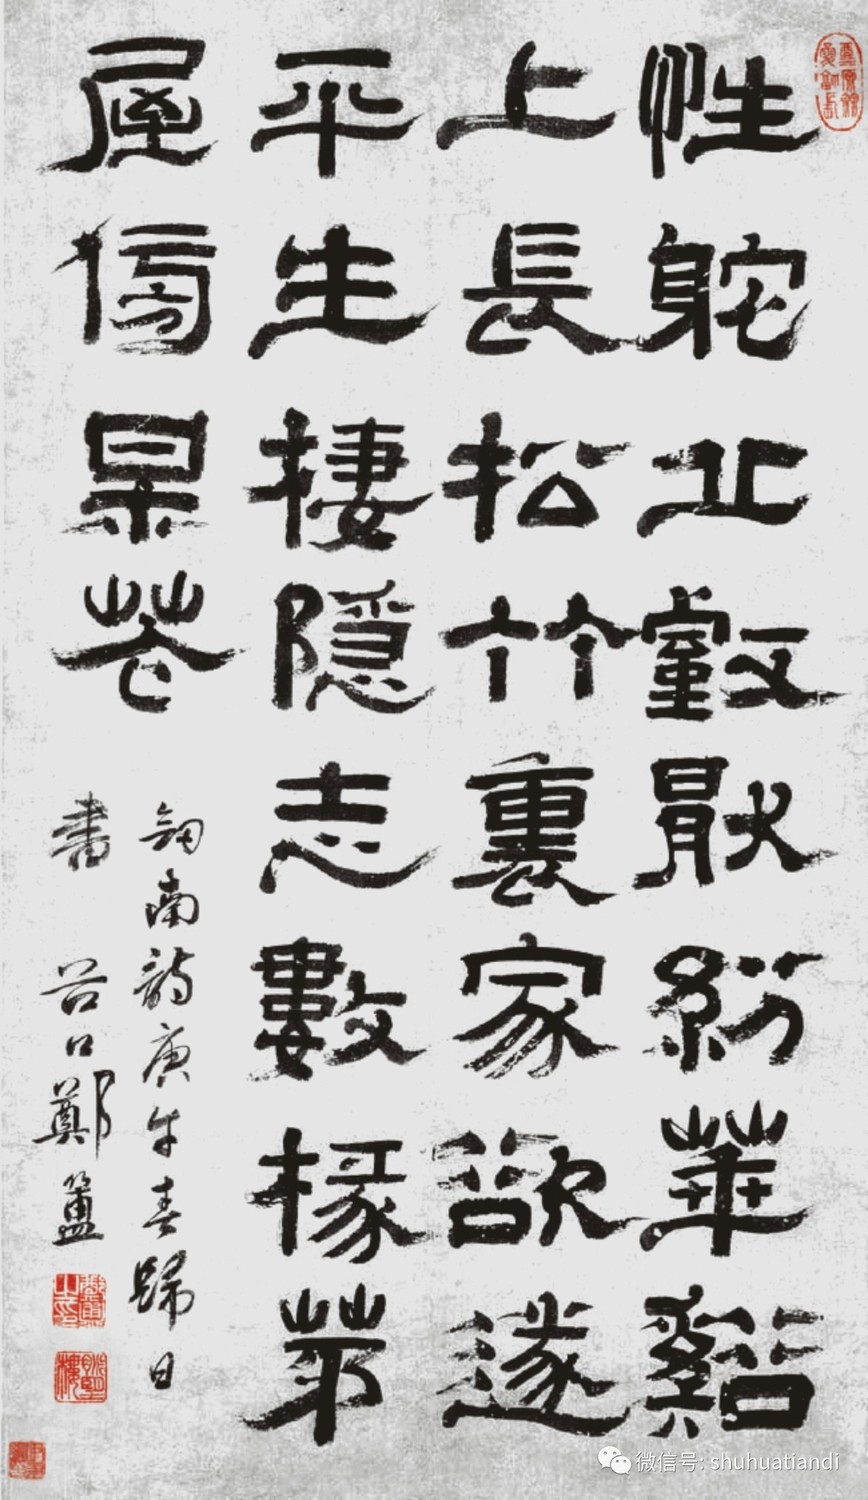 性躭丘壑猒紛華谿
上長松竹裏家欲遂
平生棲隱志數椽茅
屋傍杲花
劔南詩庚午春歸日
書 谷口鄭簠
微信号: shuhuatiandi